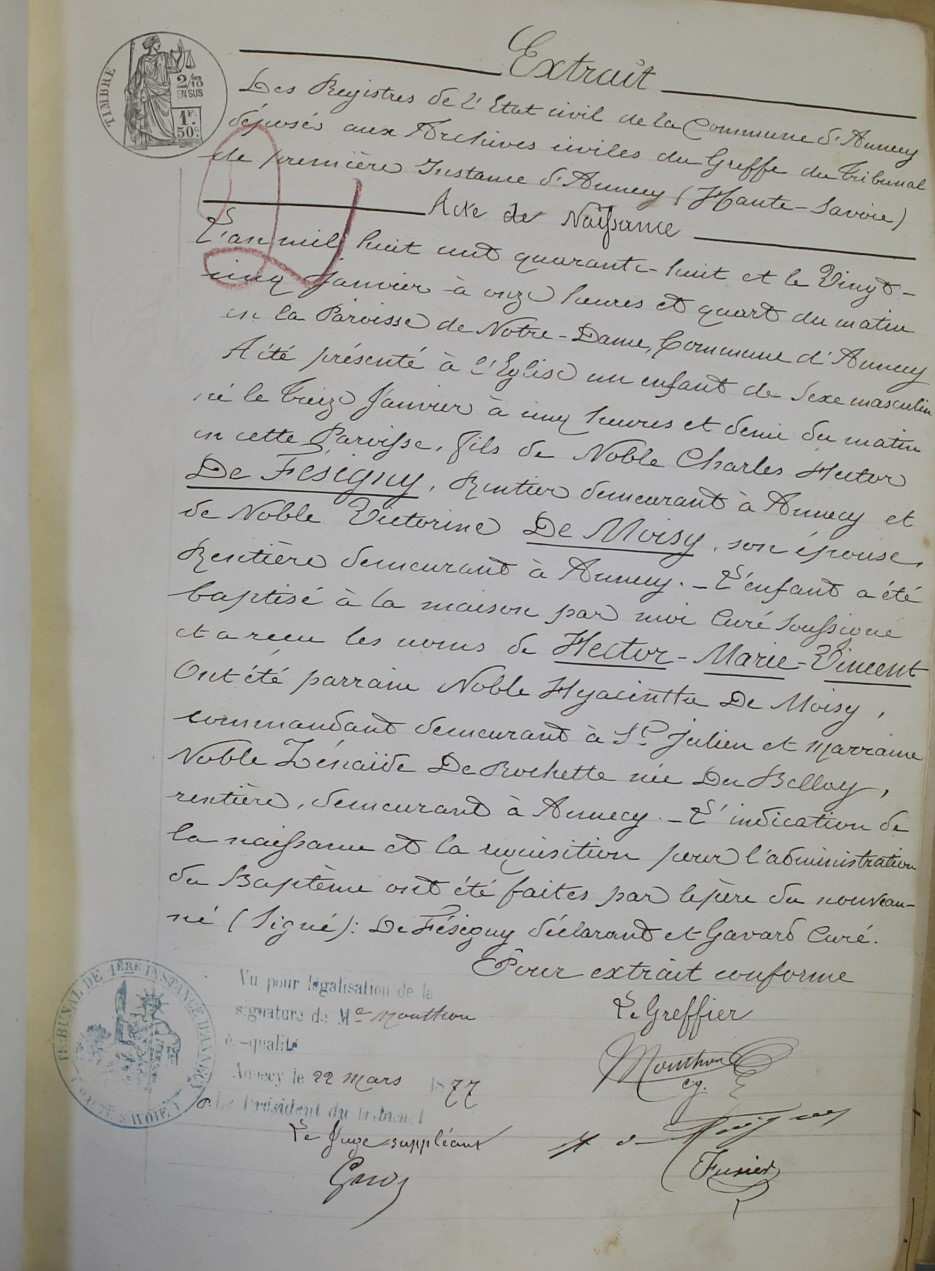 TIMBRE
2/10
EN SUS
1F.
50c
Extrait
Des Registres de l'Etat civil de la Commune d'Annecy
déposés aux Archives civiles du Greffe du Tribunal
de première Instance d'Annecy (Haute-Savoie)
Acte de Naissance
L'an mil huit cent quarante-huit et le Vingt-
cinq Janvier à onze heures et quart du matin
en la Paroisse de Notre-Dame, Commune d'Annecy
A été présenté à l'Eglise un enfant de sexe masculin
né le treize Janvier à cinq heures et demie du matin
en cette Paroisse, fils de Noble Charles Hector
De Fésigny, Rentier demeurant à Annecy et
de Noble Victorine De Moisy, son épouse,
Rentière demeurant à Annecy. _ L'enfant a été
baptisé à la maison par moi Curé soussigné
et a reçu les noms de Hector-Marie-Vincent
Ont été parrain Noble Hyacinthe De Moisy,
commandant demeurant à St Julien et Marraine
Noble Zénaïde De Rochette née Du Belloy,
rentière, demeurant à Annecy. _ L'indication de
la naissance et la réquisition pour l'administration
du Baptême ont été faites par le père du nouveau-
né (Signé): De Fésigny déclarant et Gavard Curé.
Pour extrait conforme
Le Greffier
Mouthon
cg.
TRIBUNAL DE 1ÈRE INSTANCE D'ANNECY
(HTE SAVOIE)
Vu pour légalisation de la
signature de Me Mouthon
è-qualité
Annecy le 22 mars 1877
Le Président du tribunal
Le Juge suppléant
Fusier